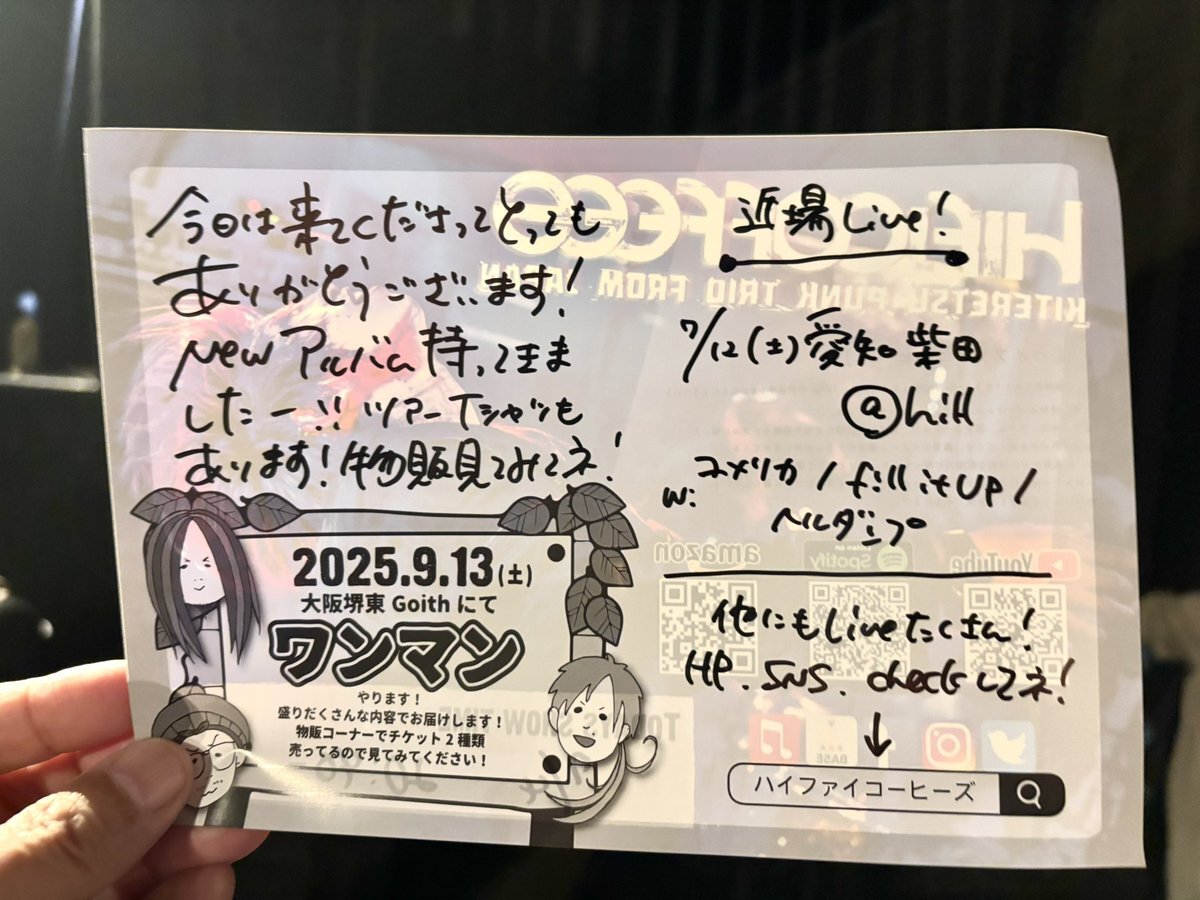 今日は来てくださってとっても
ありがとうございます!
Newアルバム持ってきま
したー!! ツアーTシャツも
あります!物販見てみてネ!
2025.9.13(土)
大阪堺東 Goith にて
ワンマン
やります!
盛りだくさんな内容でお届けします!
物販コーナーでチケット2種類
売ってるので見てみてください!
近場Live!
7/12(土)愛知 柴田
@hill
w: ユメリカ / fill it UP /
ヘルダンプ
他にもLiveたくさん!
HP. SNS. checkしてネ!
↓
ハイファイコーヒーズ
HIFICOFFEES
KITERETSU PUNK TRIO FROM JAPAN
YouTube
Spotify
amazon
BASE